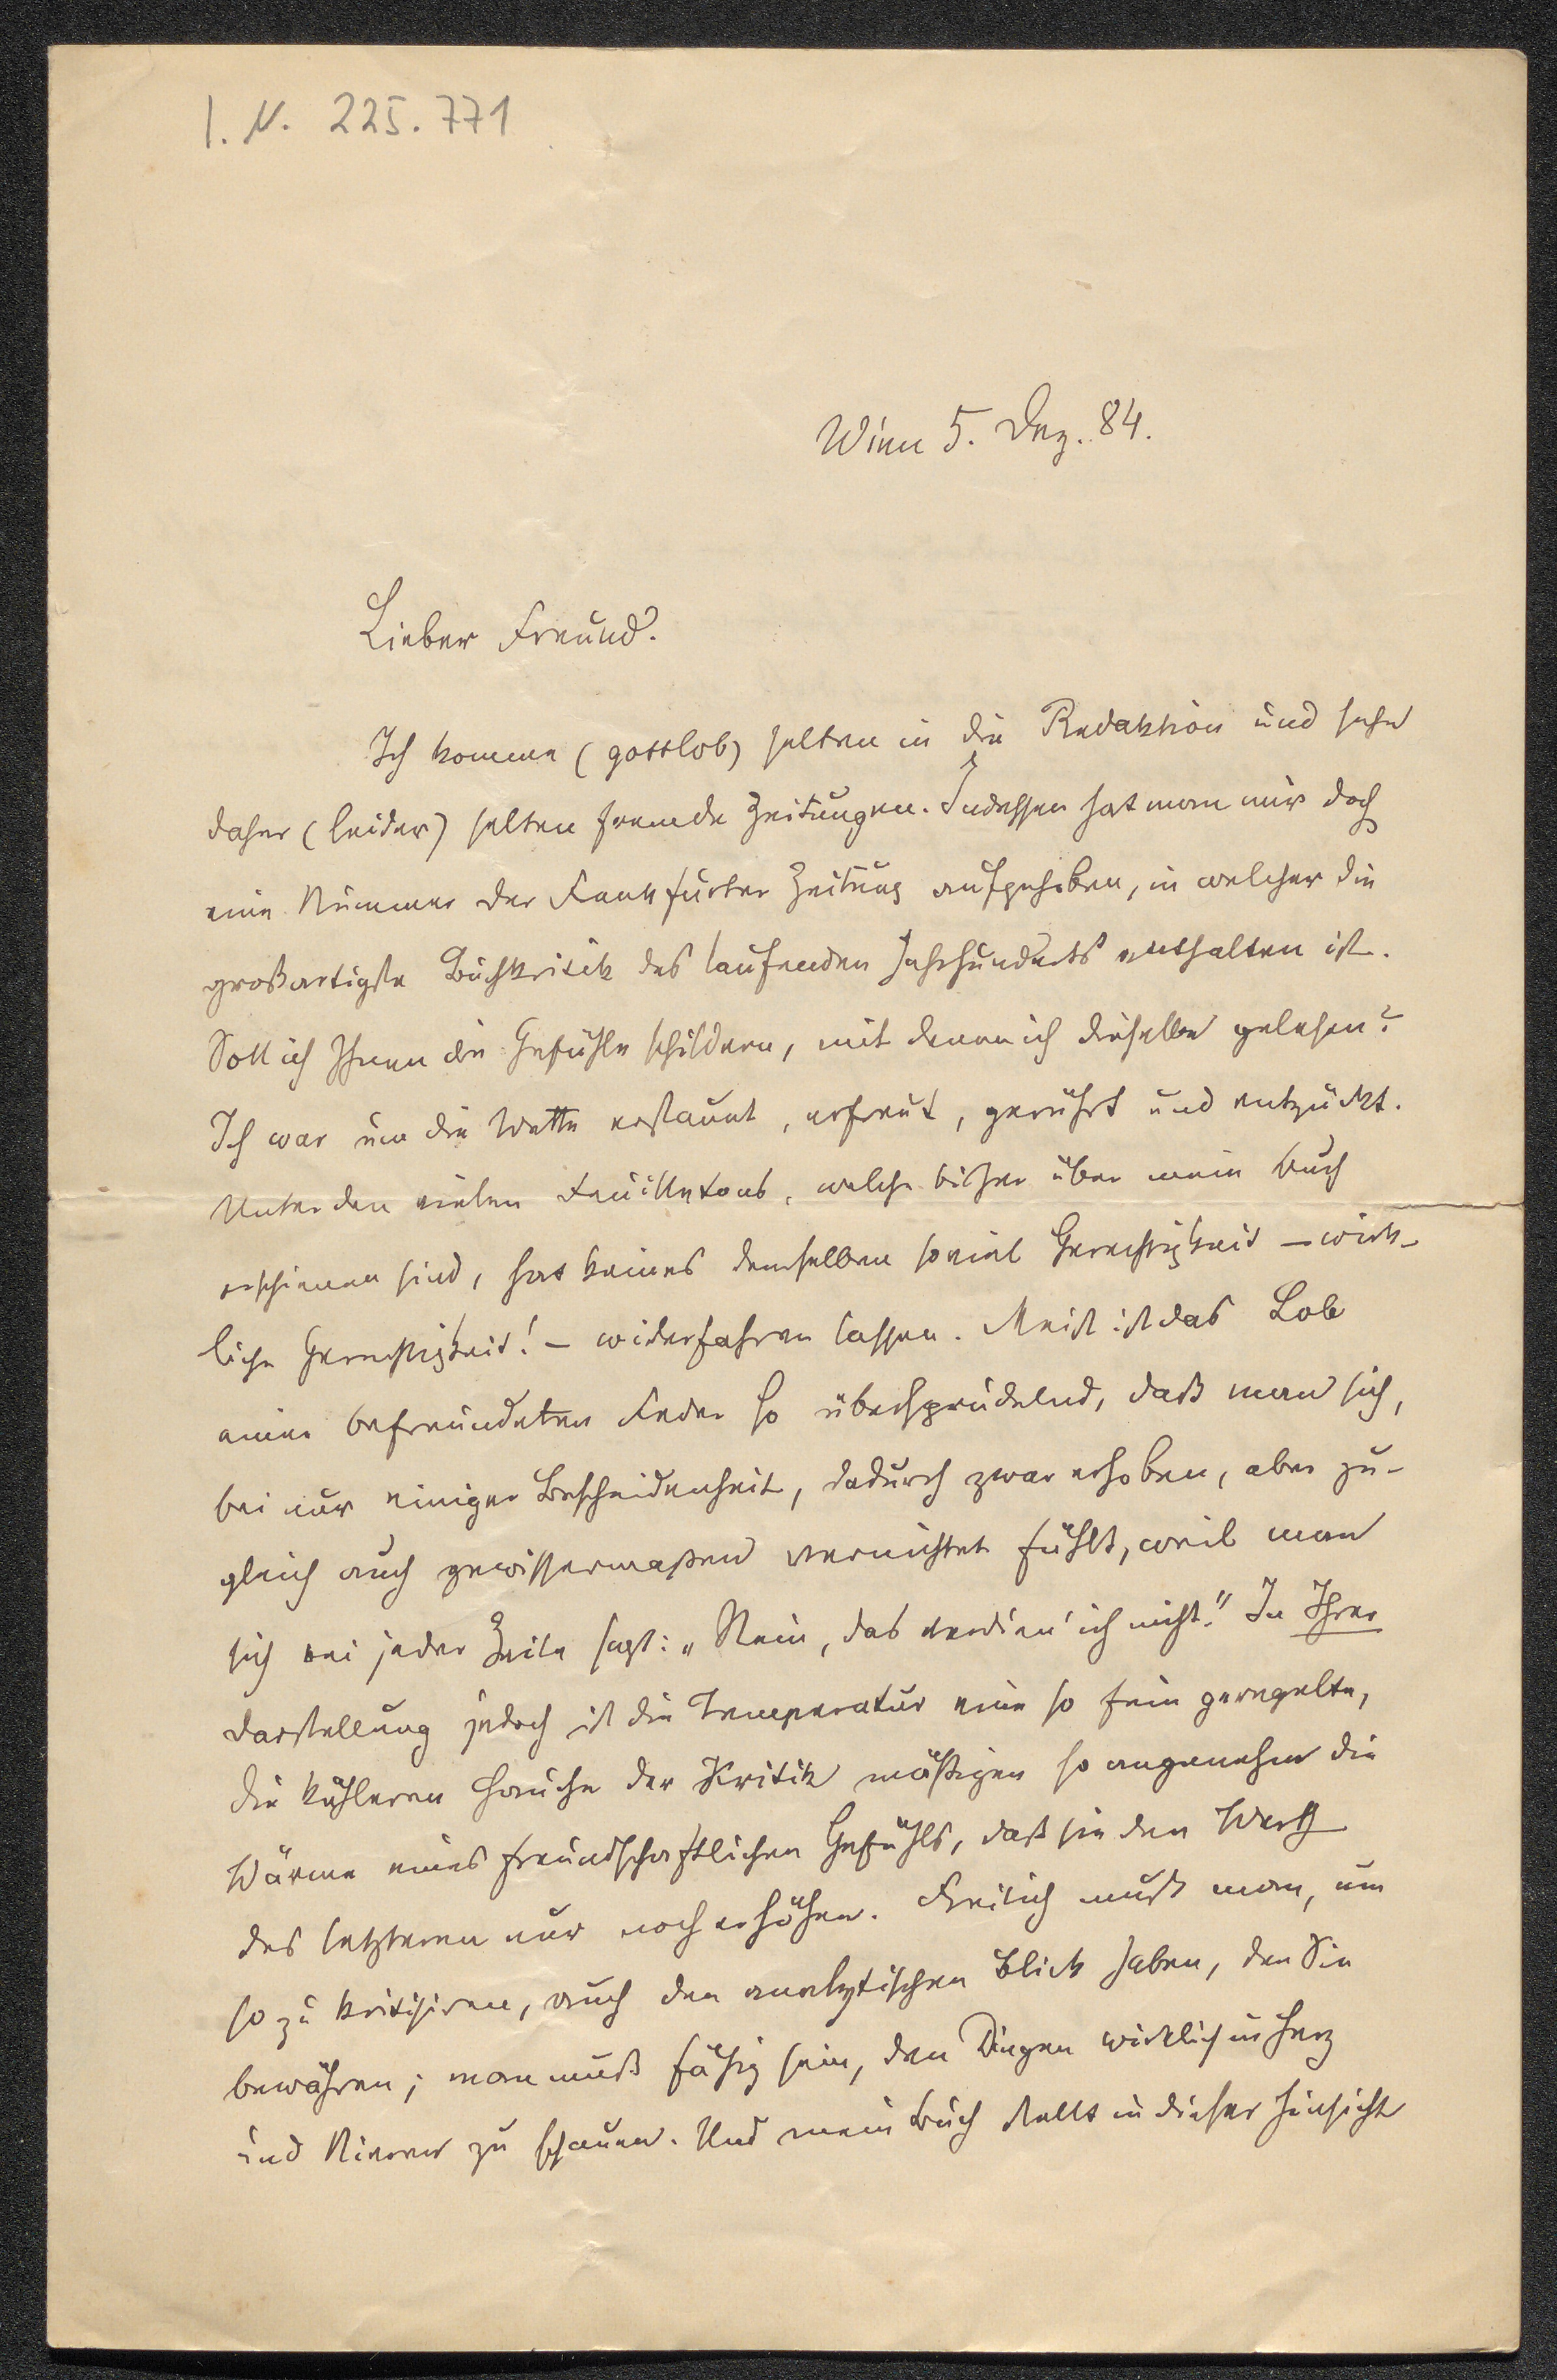 I. N. 225.771
Wien 5. Dez. 84.
Lieber Freund.
Ich komme (gottlob) selten in die Redaktion und sehe
daher (leider) selten fremde Zeitungen. Indessen hat man mir doch
eine Nummer der Frankfurter Zeitung aufgehoben, in welcher die
großartigste Buchkritik des laufenden Jahrhunderts enthalten ist.
Soll ich Ihnen die Gefühle schildern, mit denen ich dieselbe gelesen?
Ich war um die Wette erstaunt, erfreut, gerührt und entzückt.
Unter den vielen Feuilletons, welche bisher über mein Buch
erschienen sind, hat keines demselben soviel Gerechtigkeit – wirk-
liche Gerechtigkeit! – widerfahren lassen. Meist ist das Lob
einer befreundeten Feder so übersprudelnd, daß man sich,
bei nur einiger Bescheidenheit, dadurch zwar erhoben, aber zu-
gleich auch gewissermaßen vernichtet fühlt, weil man
sich bei jeder Zeile sagt: „Nein, das verdien' ich nicht!" In Ihrer
Darstellung jedoch ist die Temperatur eine so fein geregelte,
die kühleren Hauche der Kritik mäßigen so angenehm die
Wärme eines freundschaftlichen Gefühls, daß sie den Werth
des letzteren nur noch erhöhen. Freilich muß man, um
so zu kritisiren, auch den analytischen Blick haben, den Sie
bewähren; man muß fähig sein, den Dingen wirklich in Herz
und Nieren zu schauen. Und mein Buch stellt in dieser Hinsicht